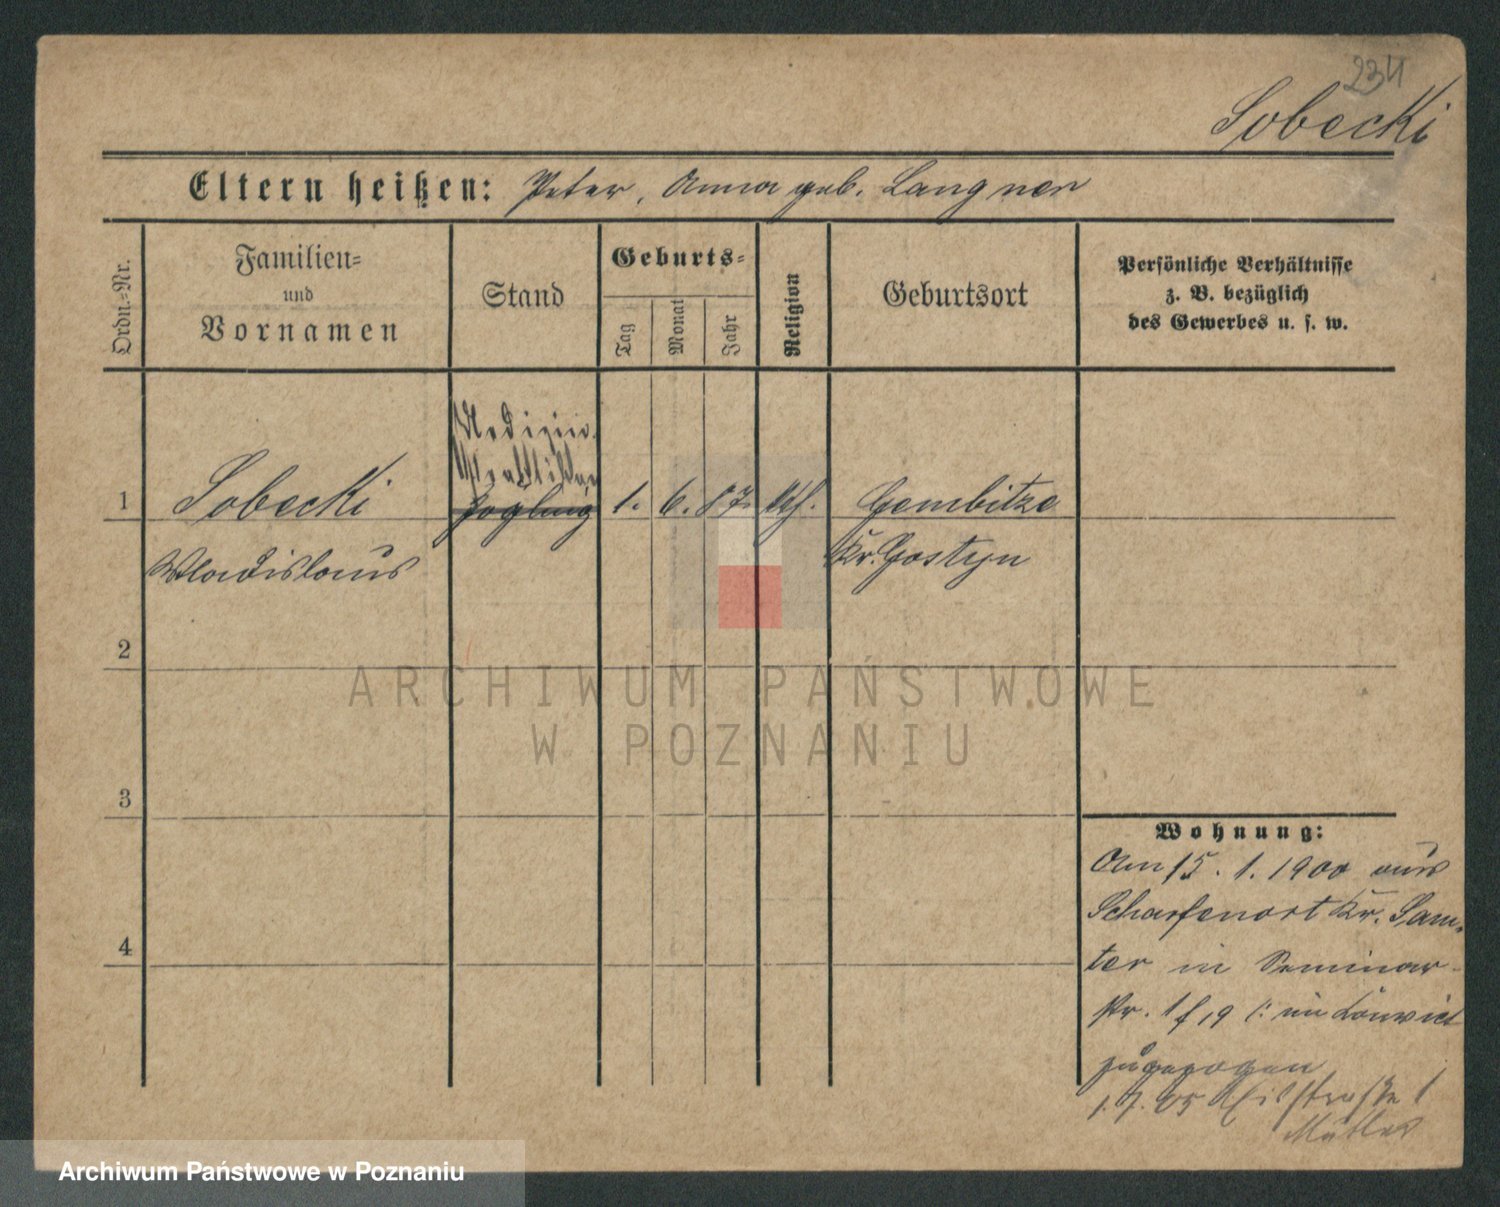 234
Sobecki
Eltern heißen: Peter, Anna geb. Langner
Ordn.-Nr.
Familien-
und
Vornamen
Stand
Geburts-
Tag
Monat
Jahr
Religion
Geburtsort
Persönliche Verhältnisse
z. B. bezüglich
des Gewerbes u. s. w.
Medizin.
1 Sobecki Zögling 1. 6. 87. kth. Gembitze
Wladislaus Kr. Gostyn
2
3
4
Wohnung:
Am 15. 1. 1900 aus
Scharfenort Kr. Sam-
ter in Seminar-
str. 1 f, 19 /: im Convict
zugezogen
1. 7. 05
ARCHIWUM PAŃSTWOWE
W POZNANIU
Archiwum Państwowe w Poznaniu